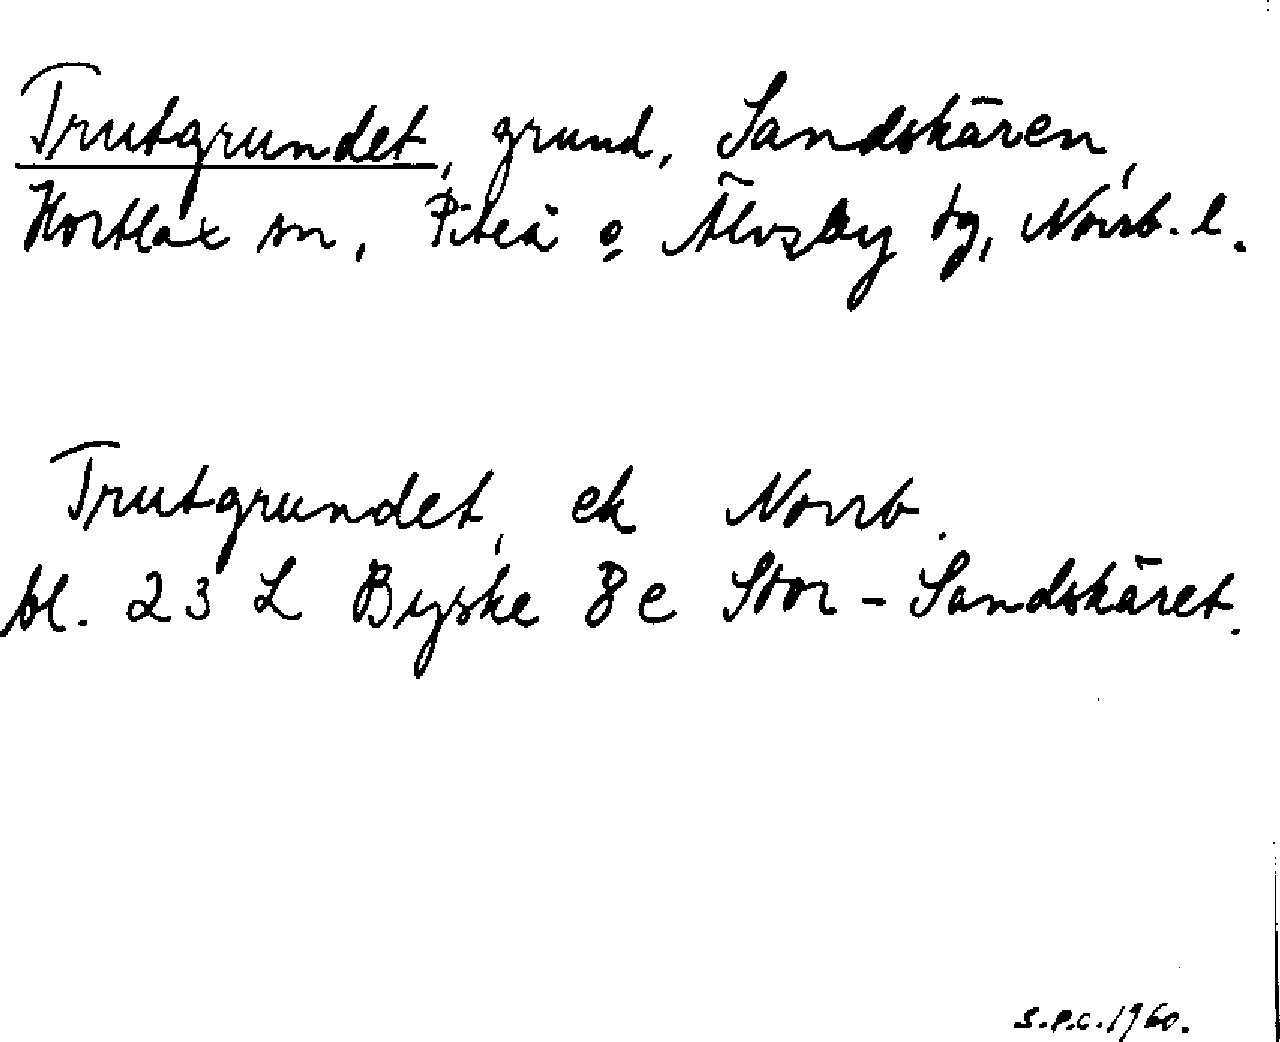 Trutgrundet, grund, Sandskären,
Hortlax sn, Piteå o. Älvsby tg, Norrb. l.
Trutgrundet, ek Norrb.
bl. 23 L Byske 8e Stor-Sandskäret.
S.P.C. 1960.